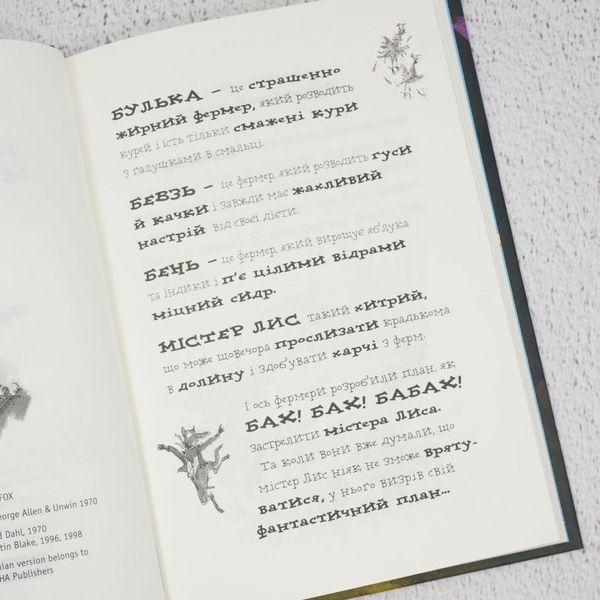 БУЛЬКА – це страшенно
жирний фермер, який розводить
курей і їсть тільки смажені кури
з галушками в смальці.
БЕВЗЬ – це фермер, який розводить гуси
й качки і завжди має жахливий
настрій від своєї дієти.
БЕНЬ – це фермер, який вирощує яблука
та індики і п'є цілими відрами
міцний сидр.
МІСТЕР ЛИС такий хитрий,
що може щовечора прослизати крадькома
в долину і здобувати харчі з ферм.
І ось фермери розробили план, як
БАХ! БАХ! БАБАХ!
застрелити містера Лиса.
Та коли вони вже думали, що
містер Лис ніяк не зможе вряту-
ватися, у нього визрів свій
фантастичний план...
FOX
eorge Allen & Unwin 1970
d Dahl, 1970
tin Blake, 1996, 1998
nian version belongs to
HA Publishers